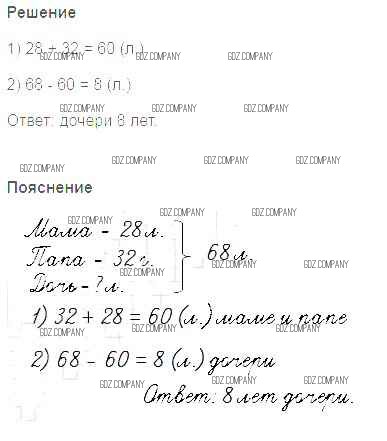 Решение
1) 28 + 32 = 60 (л.)
GDZ.COMPANY GDZ.COMPANY GDZ.COMPANY
2) 68 - 60 = 8 (л.)
GDZ.COMPANY GDZ.COMPANY GDZ.COMPANY
Ответ: дочери 8 лет.
GDZ.COMPANY GDZ.COMPANY GDZ.COMPANY
Пояснение
GDZ.COMPANY GDZ.COMPANY
GDZ.COMPANY
Мама - 28 л.
Папа - 32 г. 68 л.
GDZ.COMPANY GDZ.COMPANY GDZ.COMPANY
Дочь - ? л.
1) 32 + 28 = 60 (л.) маме и папе
GDZ.COMPANY GDZ.COMPANY GDZ.COMPANY
2) 68 - 60 = 8 (л.) дочери
GDZ.COMPANY GDZ.COMPANY GDZ.COMPANY
Ответ: 8 лет дочери.
GDZ.COMPANY GDZ.COMPANY GDZ.COMPANY